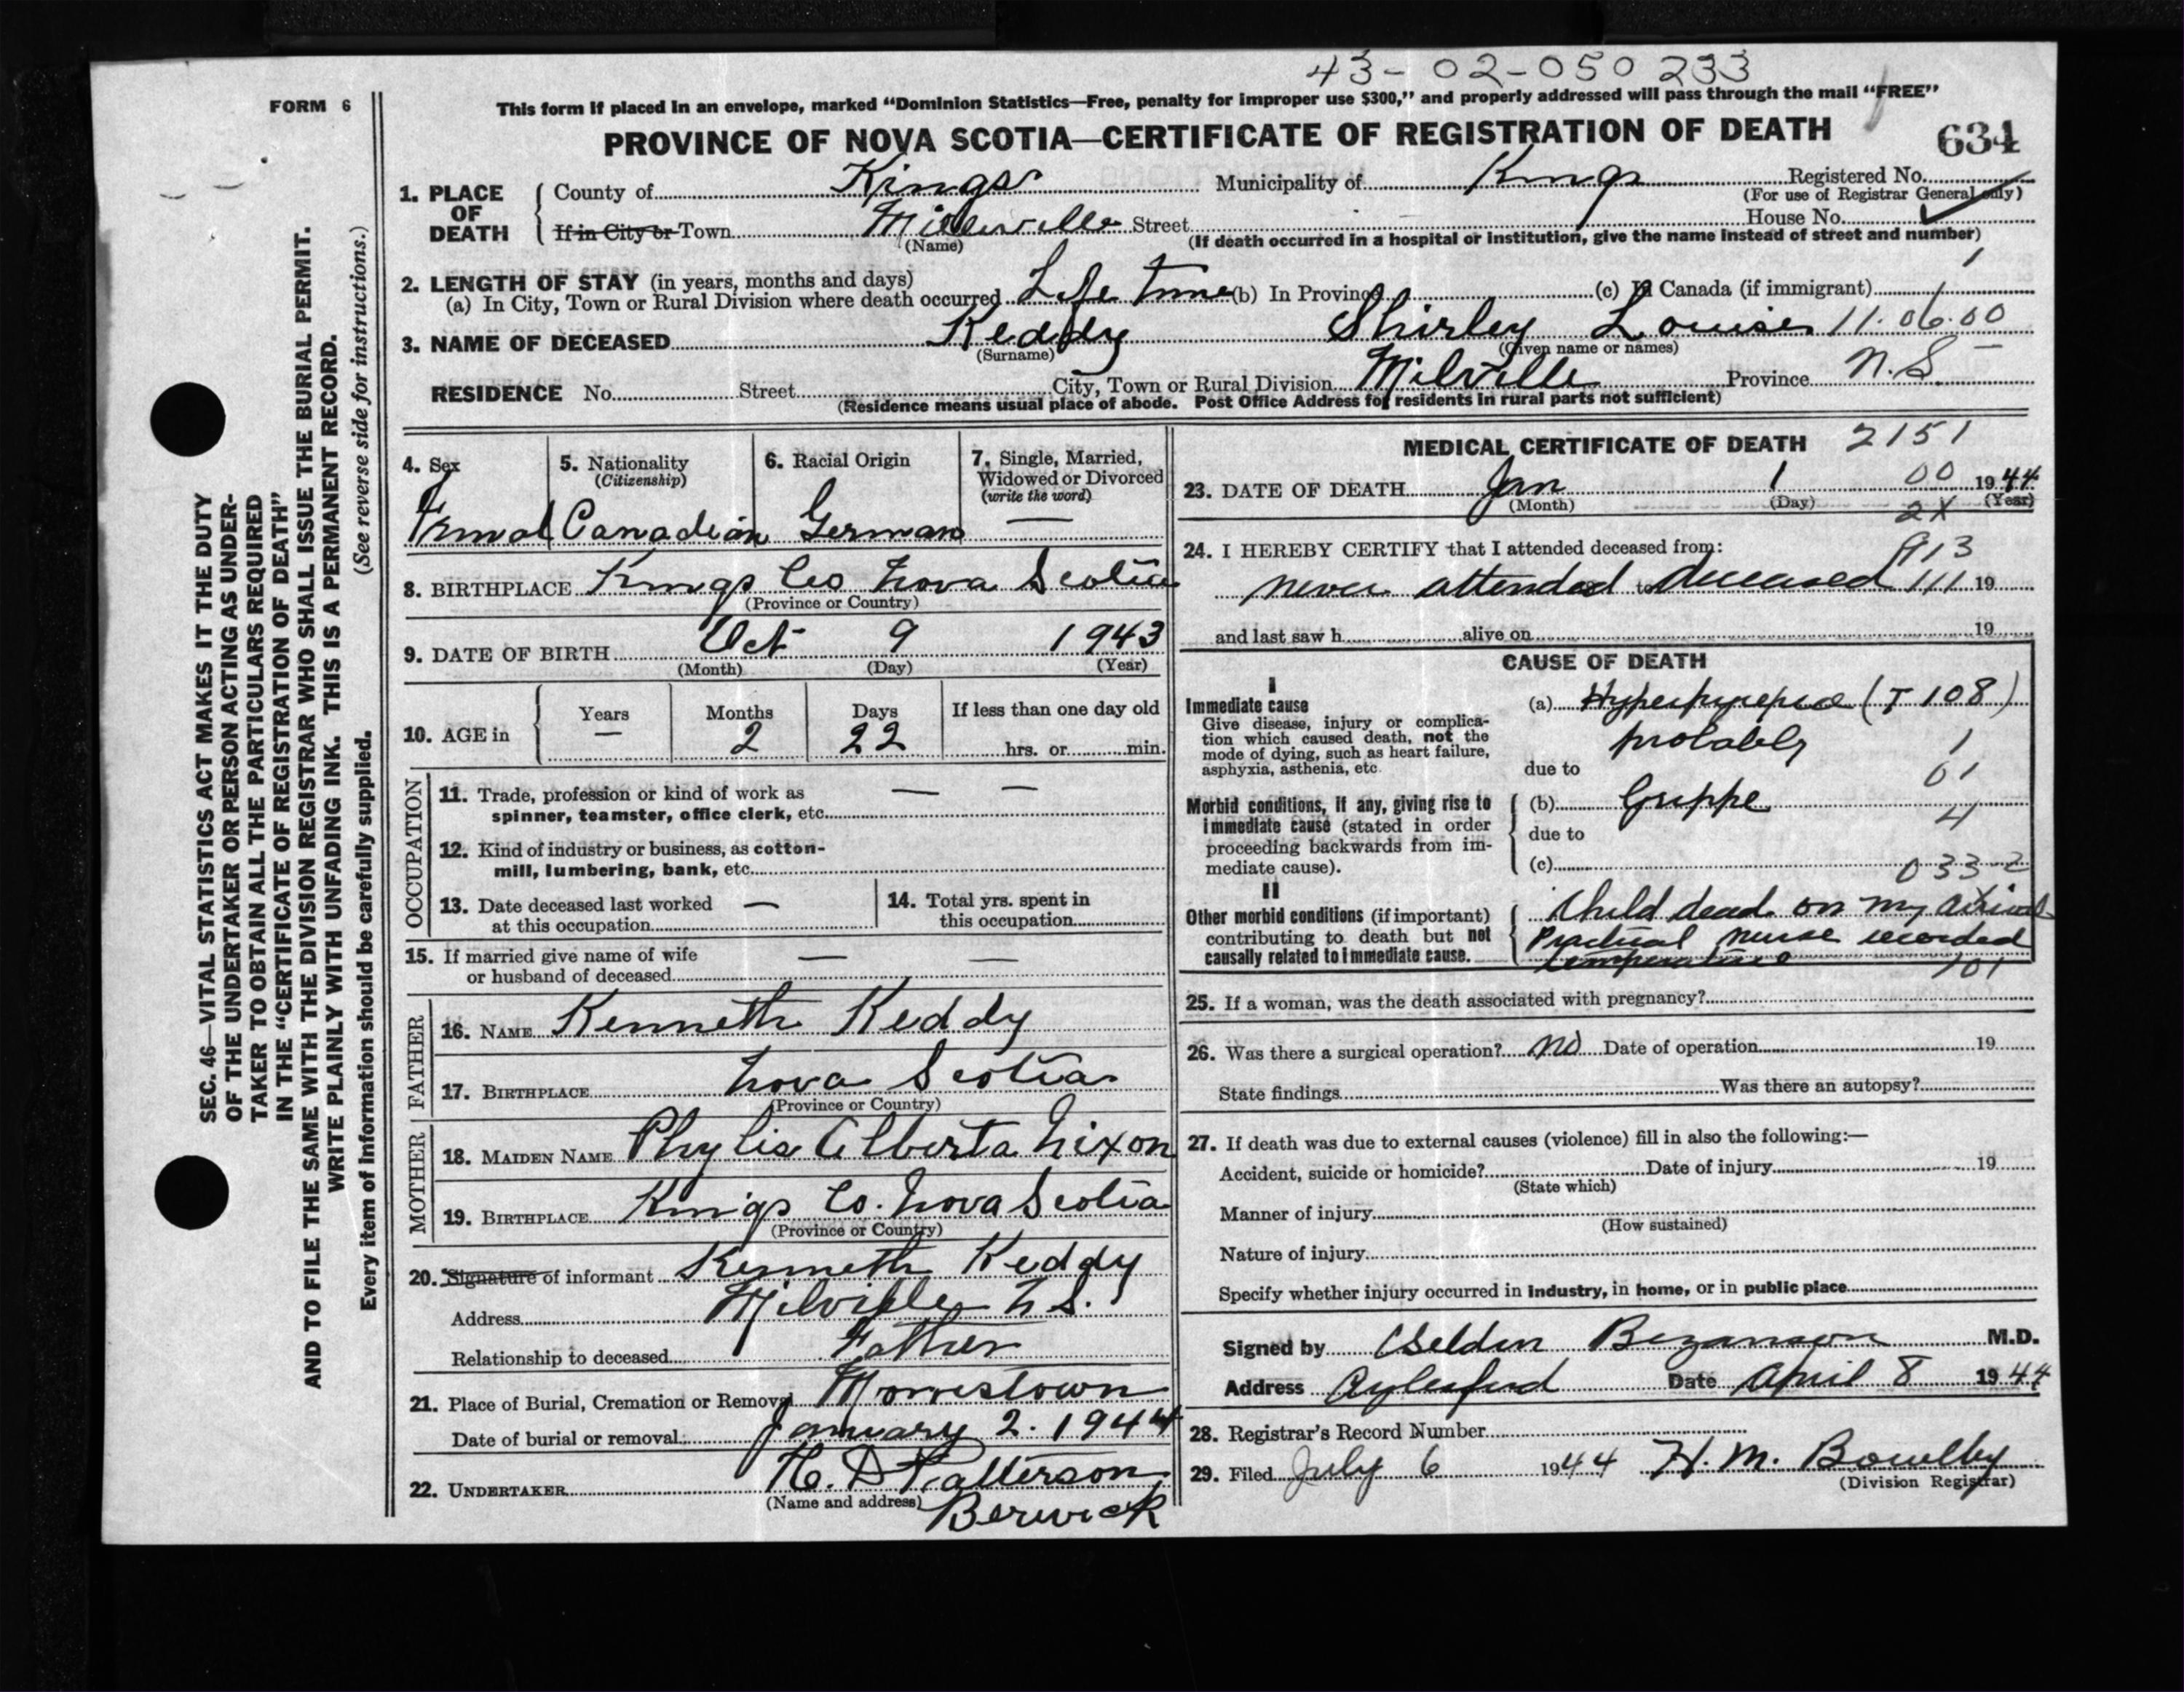 43-02-050233
FORM 6
This form if placed in an envelope, marked “Dominion Statistics—Free, penalty for improper use $300,” and properly addressed will pass through the mail “FREE”
PROVINCE OF NOVA SCOTIA—CERTIFICATE OF REGISTRATION OF DEATH
634
1. PLACE OF DEATH
County of Kings Municipality of Kings Registered No.
(For use of Registrar General only)
If in City or Town Millville Street House No.
(Name) (If death occurred in a hospital or institution, give the name instead of street and number)
2. LENGTH OF STAY (in years, months and days)
(a) In City, Town or Rural Division where death occurred Life Time (b) In Province (c) In Canada (if immigrant)
3. NAME OF DECEASED Keddy Shirley Louise 11.06.00
(Surname) (Given name or names)
RESIDENCE No. Street City, Town or Rural Division Milville Province N.S.
(Residence means usual place of abode. Post Office Address for residents in rural parts not sufficient)
SEC. 46—VITAL STATISTICS ACT MAKES IT THE DUTY
OF THE UNDERTAKER OR PERSON ACTING AS UNDER-
TAKER TO OBTAIN ALL THE PARTICULARS REQUIRED
IN THE “CERTIFICATE OF REGISTRATION OF DEATH”
AND TO FILE THE SAME WITH THE DIVISION REGISTRAR WHO SHALL ISSUE THE BURIAL PERMIT.
WRITE PLAINLY WITH UNFADING INK. THIS IS A PERMANENT RECORD.
Every item of information should be carefully supplied. (See reverse side for instructions.)
4. Sex 5. Nationality 6. Racial Origin 7. Single, Married,
(Citizenship) Widowed or Divorced
(write the word)
Femal Canadian German —
8. BIRTHPLACE Kings Co Nova Scotia
(Province or Country)
9. DATE OF BIRTH Oct 9 1943
(Month) (Day) (Year)
10. AGE in Years Months Days If less than one day old
— 2 22 hrs. or min.
OCCUPATION
11. Trade, profession or kind of work as — —
spinner, teamster, office clerk, etc.
12. Kind of industry or business, as cotton-
mill, lumbering, bank, etc.
13. Date deceased last worked — 14. Total yrs. spent in
at this occupation this occupation
15. If married give name of wife — —
or husband of deceased
FATHER
16. NAME Kenneth Keddy
17. BIRTHPLACE Nova Scotia
(Province or Country)
MOTHER
18. MAIDEN NAME Phylis Alberta Nixon
19. BIRTHPLACE Kings Co. Nova Scotia
(Province or Country)
20. Signature of informant Kenneth Keddy
Address Milville N S.
Relationship to deceased Father
21. Place of Burial, Cremation or Removal Morristown
Date of burial or removal January 2. 1944
22. UNDERTAKER H. D Patterson
(Name and address) Berwick
MEDICAL CERTIFICATE OF DEATH 2151
23. DATE OF DEATH Jan 1 00 1944
(Month) (Day) 2X (Year)
24. I HEREBY CERTIFY that I attended deceased from: 913
never attended to deceased 111 19
and last saw h alive on 19
CAUSE OF DEATH
I
Immediate cause (a) Hyperpyrexia (T 108)
Give disease, injury or complica-
tion which caused death, not the probably 1
mode of dying, such as heart failure,
asphyxia, asthenia, etc. due to 01
Morbid conditions, if any, giving rise to (b) Grippe
immediate cause (stated in order due to 4
proceeding backwards from im-
mediate cause). (c) 033-2
II
Other morbid conditions (if important) Child dead on my arrival
contributing to death but not Practical nurse recorded
causally related to immediate cause. temperature 101
25. If a woman, was the death associated with pregnancy?
26. Was there a surgical operation? No Date of operation 19
State findings Was there an autopsy?
27. If death was due to external causes (violence) fill in also the following:—
Accident, suicide or homicide? Date of injury 19
(State which)
Manner of injury
(How sustained)
Nature of injury
Specify whether injury occurred in industry, in home, or in public place
Signed by Selden Bezanson M.D.
Address Aylesford Date April 8 1944
28. Registrar's Record Number
29. Filed July 6 1944 H. M. Bowlby
(Division Registrar)